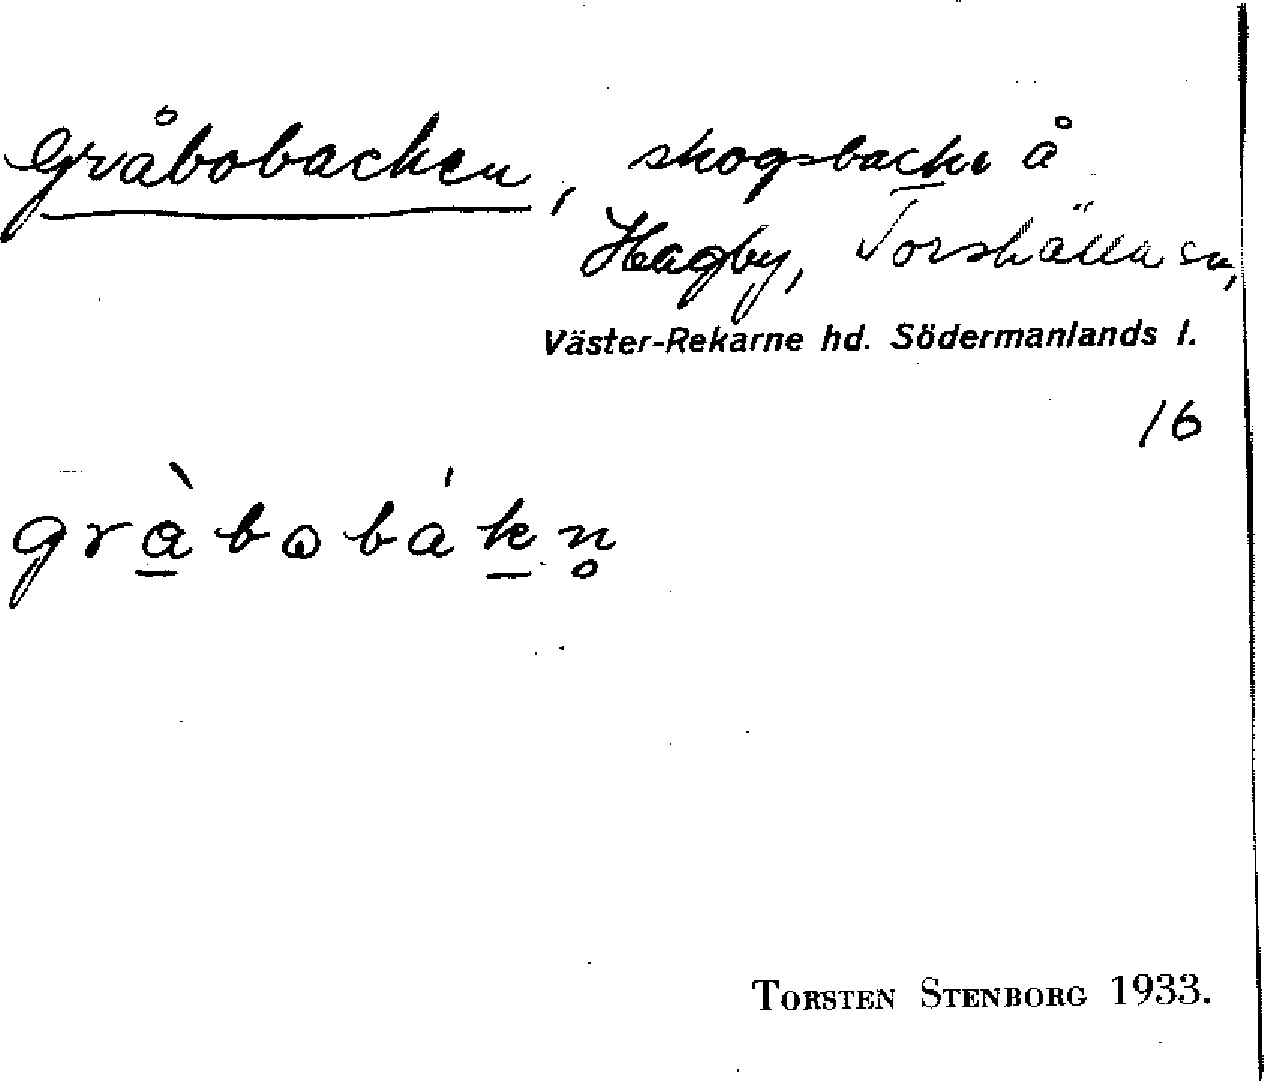 Gråbobacken, skogsbacke å
Hagby, Torshälla sn,
Väster-Rekarne hd. Södermanlands l.
16
gràbobákn̥
TORSTEN STENBORG 1933.